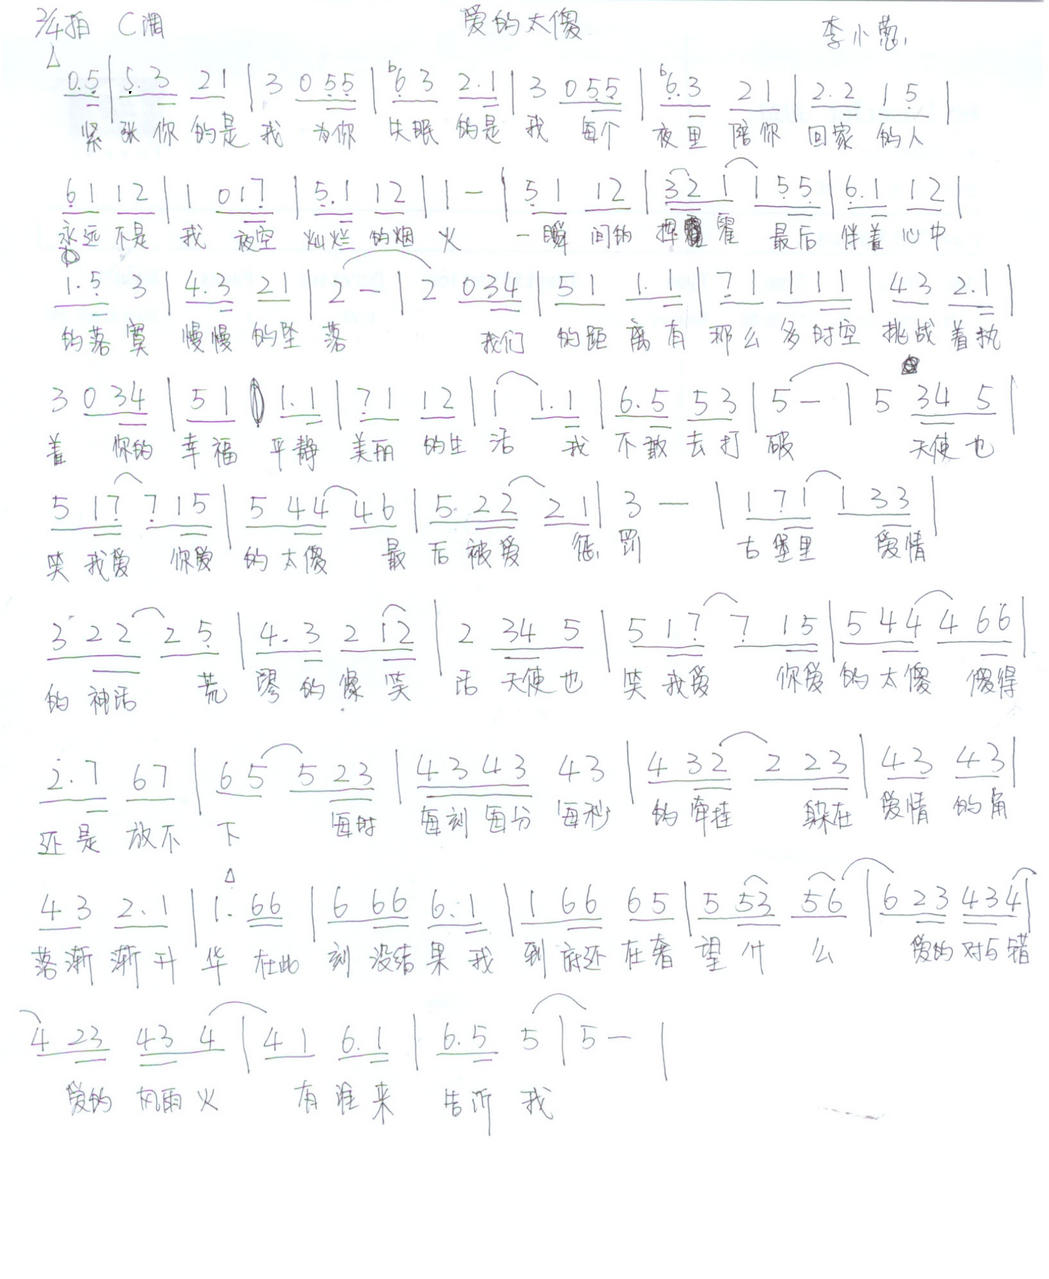 2/4拍 C调 爱的太傻 李小葱
0.5 | 5.3 21 | 3 055 | b6.3 2.1 | 3 055 | b6.3 21 | 2.2 15 |
紧张你的是我 为你 失眠的是我 每个 夜里陪你回家的人
61 12 | 1 017 | 5.1 12 | 1 - | 51 12 | 32 1 155 | 6.1 12 |
永远不是我 夜空灿烂的烟火 一瞬间的挥霍 最后伴着心中
1.5 3 | 4.3 21 | 2 - | 2 034 | 51 1.1 | 71 111 | 43 2.1 |
的落寞 慢慢的坠落 我们的距离有那么多时空挑战着执
3 034 | 51 1.1 | 71 12 | 1 1.1 | 6.5 53 | 5 - | 5 34 5 |
着 你的幸福平静美丽的生活 我不敢去打破 天使也
5 17 7 15 | 5 44 46 | 5 22 21 | 3 - | 1 71 1 33 |
笑我爱 你爱的太傻 最后被爱惩罚 古堡里 爱情
3 22 25 | 4.3 2 12 | 2 34 5 | 5 17 7 15 | 5 44 4 66 |
的神话 荒谬的像笑话 天使也笑我爱 你爱的太傻 傻得
2.7 67 | 65 5 23 | 4343 43 | 4 32 2 23 | 43 43 |
还是放不下 每时每刻每分每秒的牵挂 躲在爱情的角
43 2.1 | 1. 66 | 6 66 6.1 | 1 66 65 | 5 53 56 | 6 23 43 4 |
落渐渐升华 在此刻没结果我到底还在奢望什么 爱的对与错
4 23 43 4 | 41 6.1 | 6.5 5 | 5 - |
爱的风雨火 有谁来告诉我